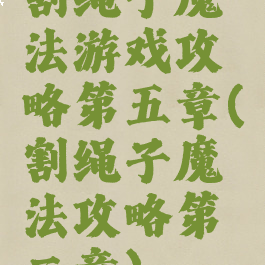 割绳子魔
法游戏攻
略第五章(
割绳子魔
法攻略第
五章)